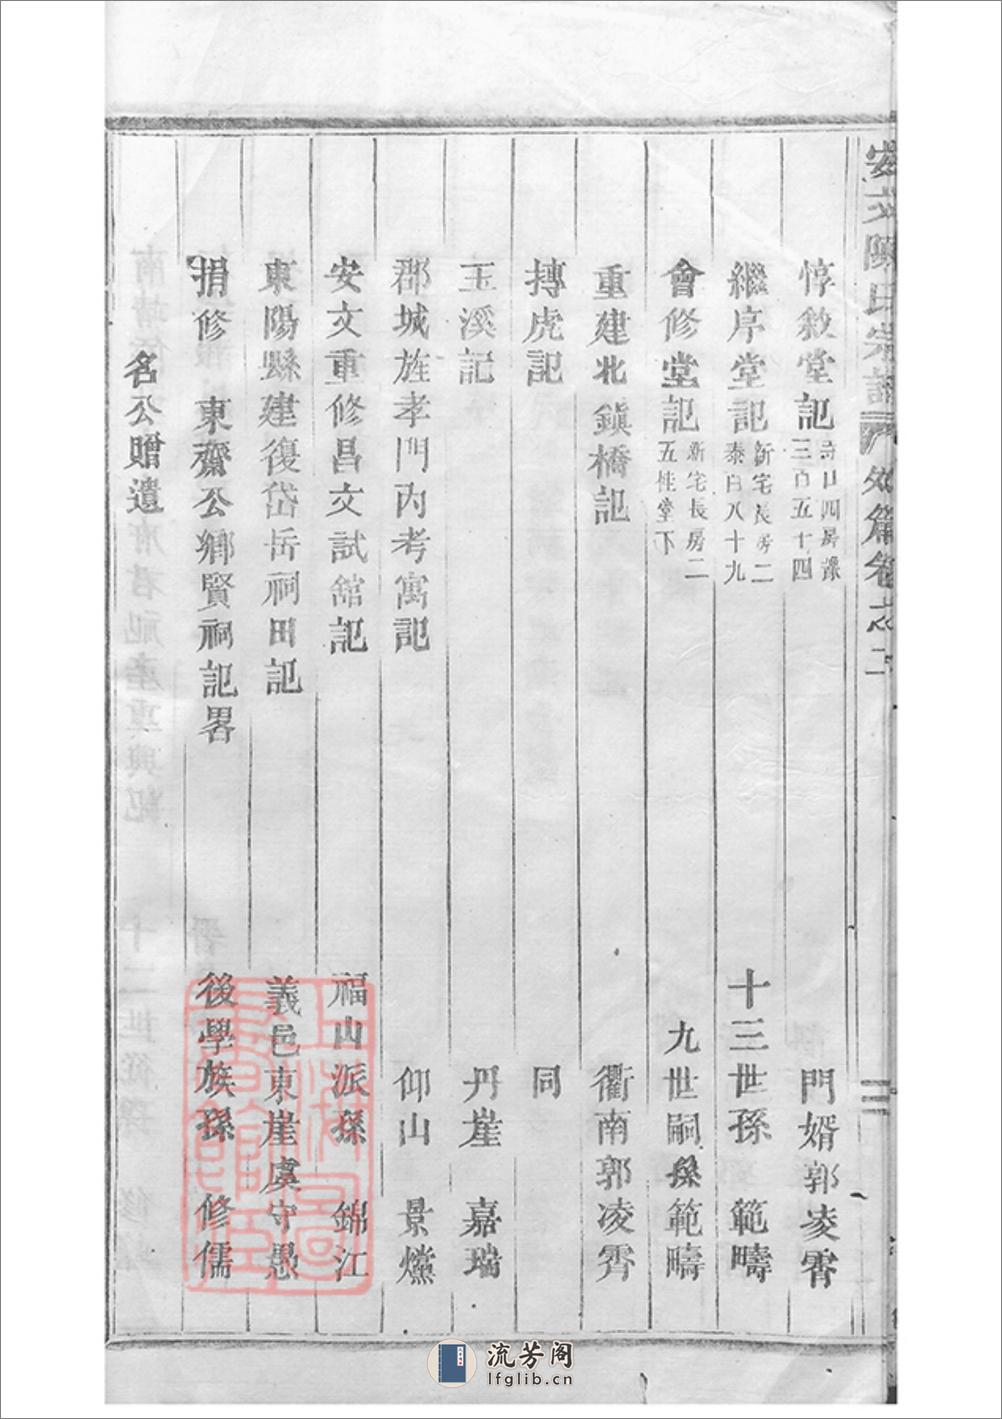 安文陳氏宗譜 外篇卷之二 三
惇敘堂記 三百五十四 門婿郭凌霄
繼序堂記 新宅長房二 泰百八十九 十三世孫 範疇
會修堂記 新宅長房二 五桂堂下 九世嗣孫範疇
重建北鎮橋記 衢南郭凌霄
摶虎記 同
玉溪記 丹崖 嘉瑞
郡城旌孝門內考寓記 仰山 景爔
安文重修昌文試舘記 福山派孫 錦江
東陽縣建復岱岳祠田記 義邑東崖虞守愚
捐修 東齋公鄉賢祠記畧 後學族孫 修儒
名公贈遺
流芳阁
lfglib.cn